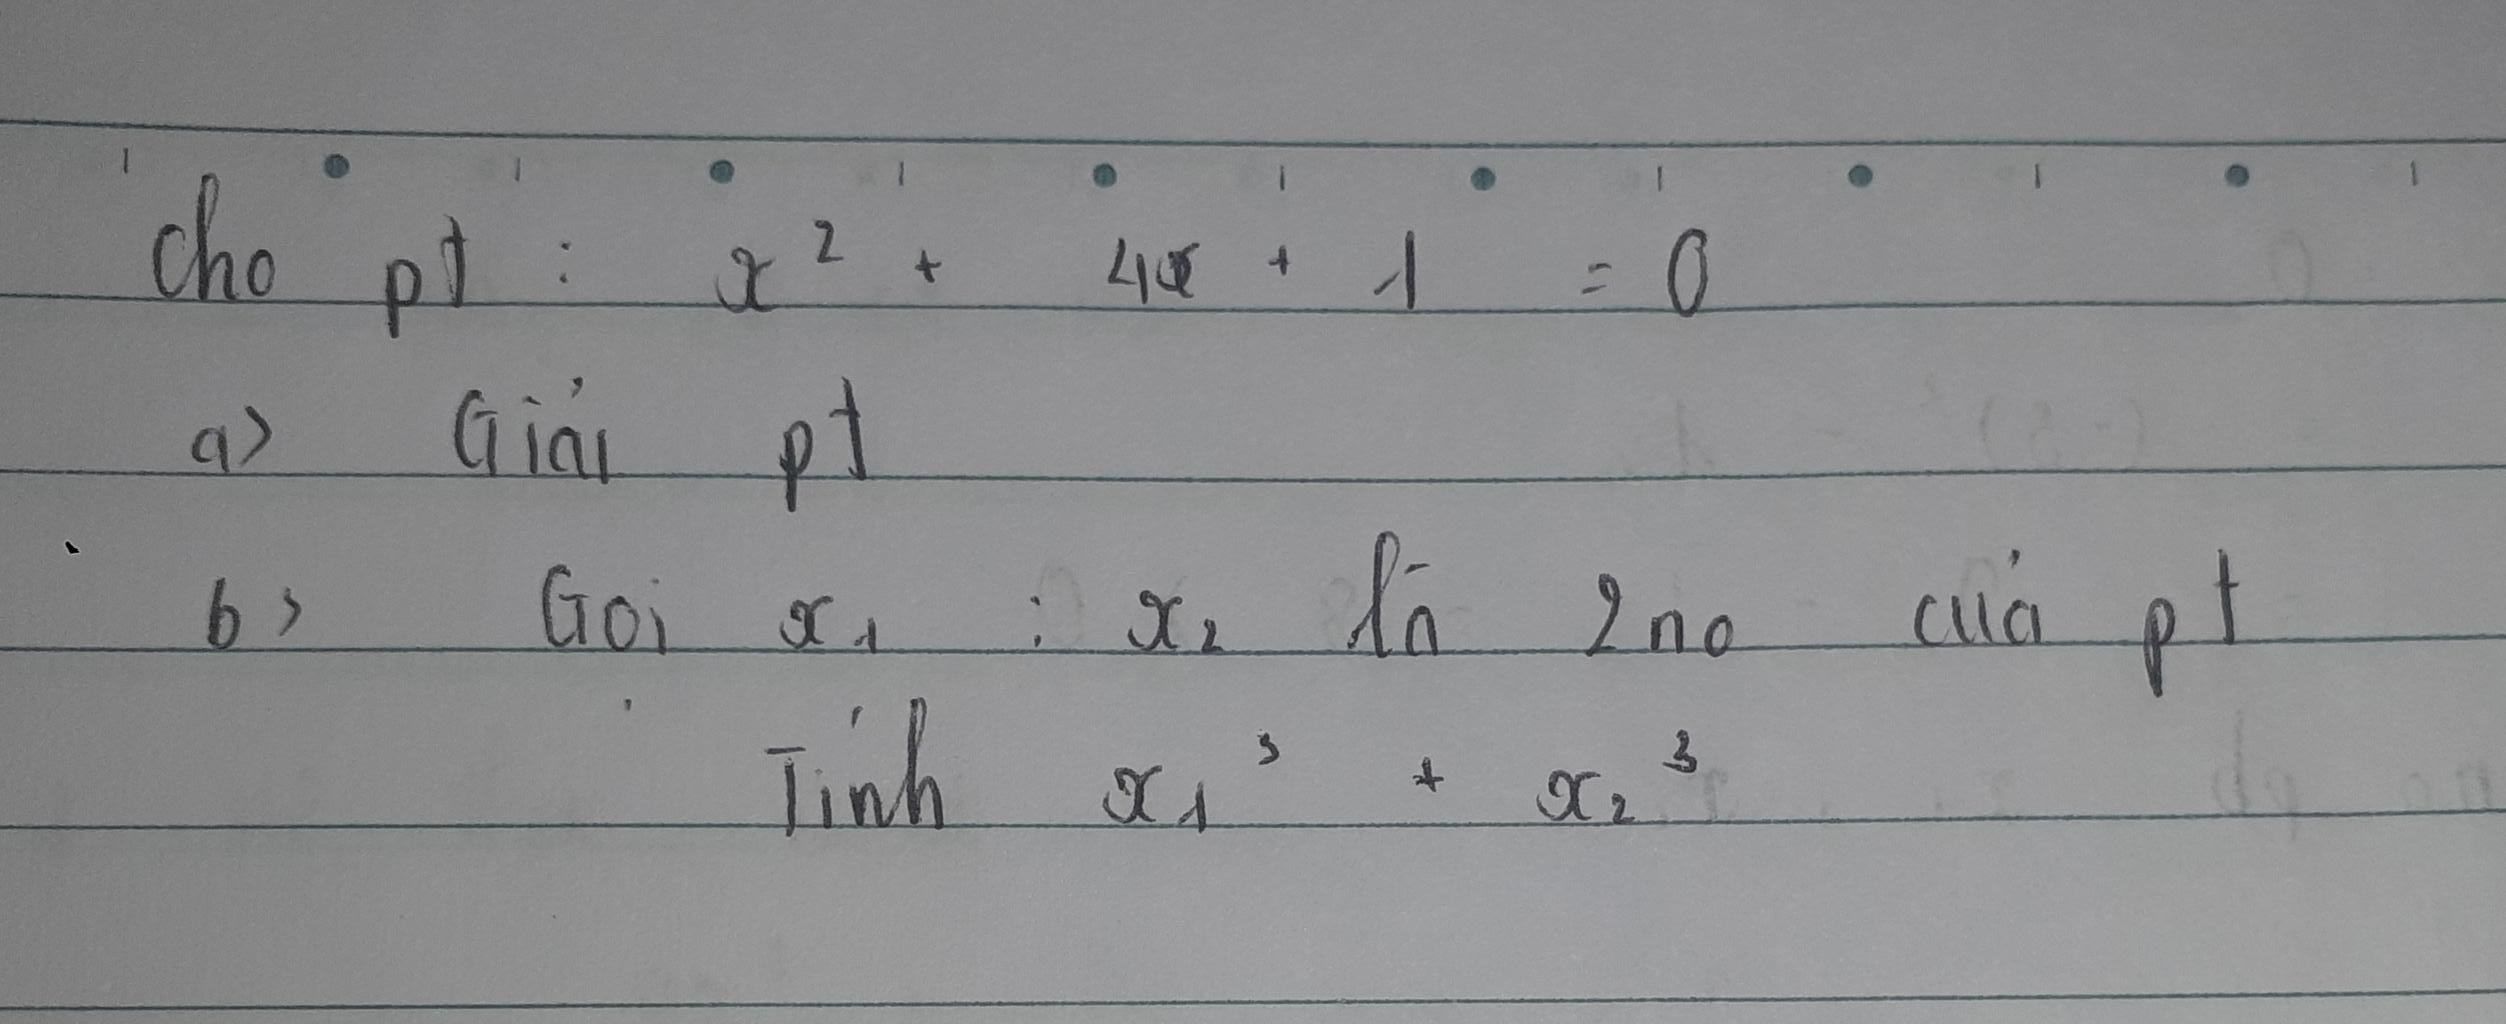 Cho pt : x² + 4x + 1 = 0
a) Giải pt
b) Gọi x₁ ; x₂ là 2 no của pt
Tính x₁³ + x₂³